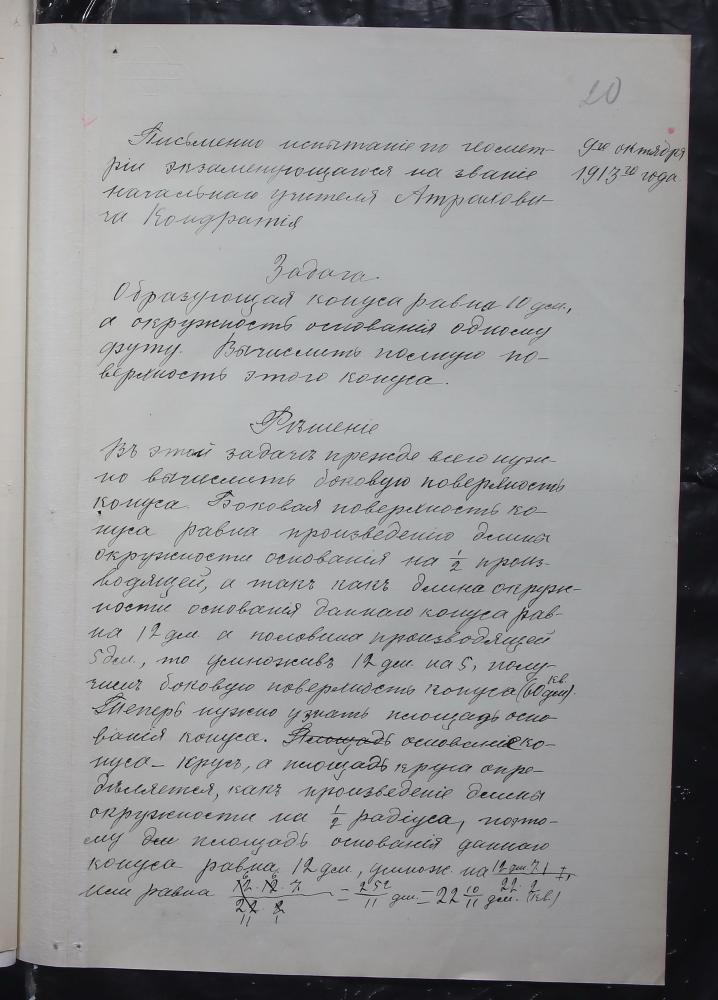 20
Письменно испытанiе по геомет-
рiи экзаменующагося на званiе
начальнаго учителя Атрахови-
ча Кондратiя
9го октября
1913го года.
Задача.
Образующая конуса равна 10 дм.,
а окружность основанiя одному
футу. Вычислить полную по-
верхность этого конуса.
Рѣшенiе
Въ этой задачѣ прежде всего нуж-
но вычислить боковую поверхность
конуса. Боковая поверхность ко-
нуса равна произведенiю длины
окружности основанiя на 1/2 произ-
водящей, а такъ какъ длина окруж-
ности основанiя даннаго конуса рав-
на 12 дм. а половина производящей
5 дм., то умноживъ 12 дм. на 5, полу-
чимъ боковую поверхность конуса (60 кв. дм).
Теперь нужно узнать площадь осно-
ванiя конуса. Площадь основанiе ко-
нуса – кругъ, а площадь круга опре-
дѣляется, какъ произведенiе длины
окружности на 1/2 радiуса, поэто-
му для площадь основанiя даннаго
конуса равна 12 дм., умнож. на 12 дм. 7 / 22 · 2
или равна 12 · 12 · 7 / 22 · 2 = 252/11 дм. = 22 10/11 дм. (кв.)